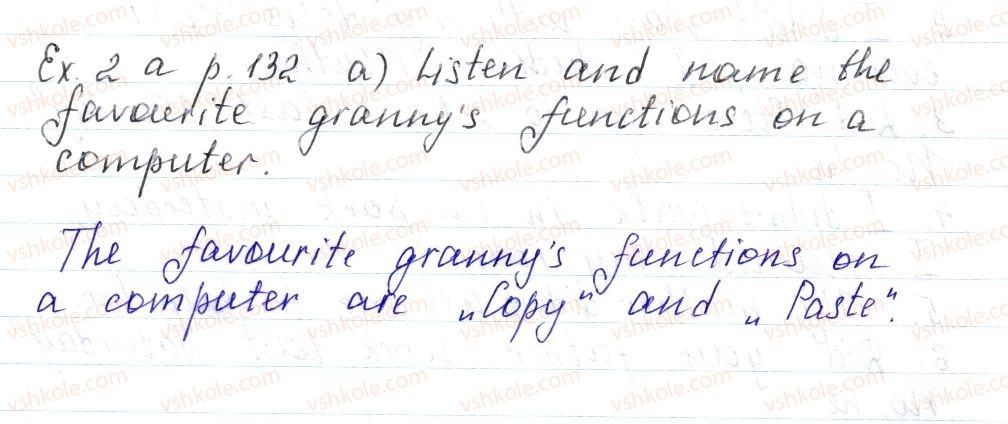 Ex. 2 a p. 132 a) Listen and name the
favourite granny's functions on a
computer.
The favourite granny's functions on
a computer are „Copy" and „Paste".